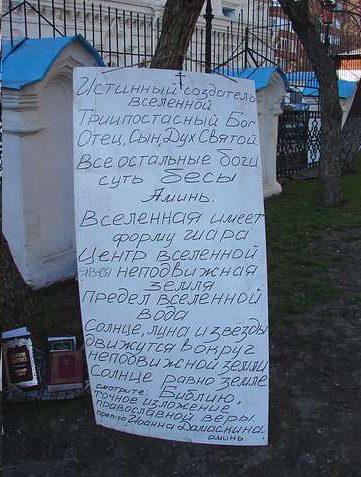 Истинный создатель
вселенной
Триипостасный Бог
Отец, Сын, Дух Святой.
Все остальные боги
суть бесы
Аминь.
Вселенная имеет
форму шара
Центр вселенной
яв-ся неподвижная
земля
Предел вселенной
вода
Солнце, луна и звезды
движутся вокруг
неподвижной земли
Солнце равно земле
смотрите: Библию,
точное изложение
православной веры.
преп-го Иоанна Дамаскина.
аминь.